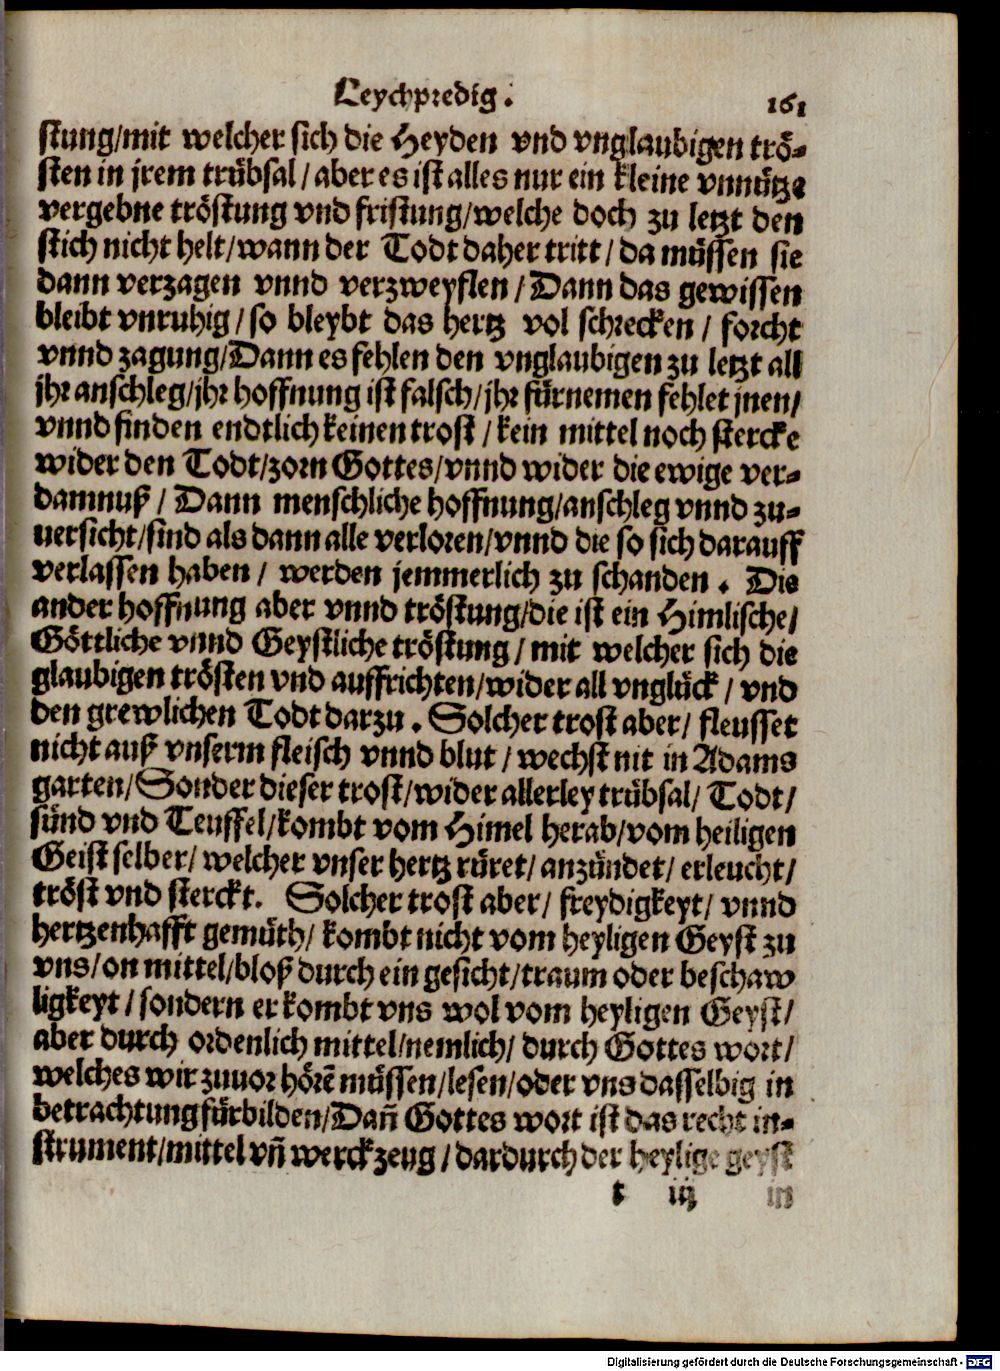 Leychpredig. 161
stung/mit welcher sich die Heyden vnd vnglaubigen trö-
sten in jrem trübsal/aber es ist alles nur ein kleine vnnütze
vergebne tröstung vnd fristung/welche doch zu letzt den
stich nicht helt/wann der Todt daher tritt/da müssen sie
dann verzagen vnnd verzweyflen/Dann das gewissen
bleibt vnruhig/so bleybt das hertz vol schrecken/forcht
vnnd zagung/Dann es fehlen den vnglaubigen zu letzt all
jhr anschleg/jhr hoffnung ist falsch/jhr fürnemen fehlet jnen/
vnnd finden endtlich keinen trost/kein mittel noch stercke
wider den Todt/zorn Gottes/vnnd wider die ewige ver-
damnuß/Dann menschliche hoffnung/anschleg vnnd zu-
uersicht/sind als dann alle verloren/vnnd die so sich darauff
verlassen haben/werden jemmerlich zu schanden. Die
ander hoffnung aber vnnd tröstung/die ist ein Himlische/
Göttliche vnnd Geystliche tröstung/mit welcher sich die
glaubigen trösten vnd auffrichten/wider all vnglück/vnd
den grewlichen Todt darzu. Solcher trost aber/fleusset
nicht auß vnserm fleisch vnnd blut/wechst nit in Adams
garten/Sonder dieser trost/wider allerley trübsal/Todt/
sünd vnd Teuffel/kombt vom Himel herab/vom heiligen
Geist selber/welcher vnser hertz rüret/anzündet/erleucht/
tröst vnd sterckt. Solcher trost aber/freydigkeyt/vnnd
hertzenhafft gemüth/kombt nicht vom heyligen Geyst zu
vns/on mittel/bloß durch ein gesicht/traum oder beschaw
ligkeyt/sondern er kombt vns wol vom heyligen Geyst/
aber durch ordenlich mittel/nemlich/durch Gottes wort/
welches wir zuuor hörẽ müssen/lesen/oder vns dasselbig in
betrachtung fürbilden/Dañ Gottes wort ist das recht in-
strument/mittel vñ werckzeug/dardurch der heylige geyst
t iij in
Digitalisierung gefördert durch die Deutsche Forschungsgemeinschaft - DFG